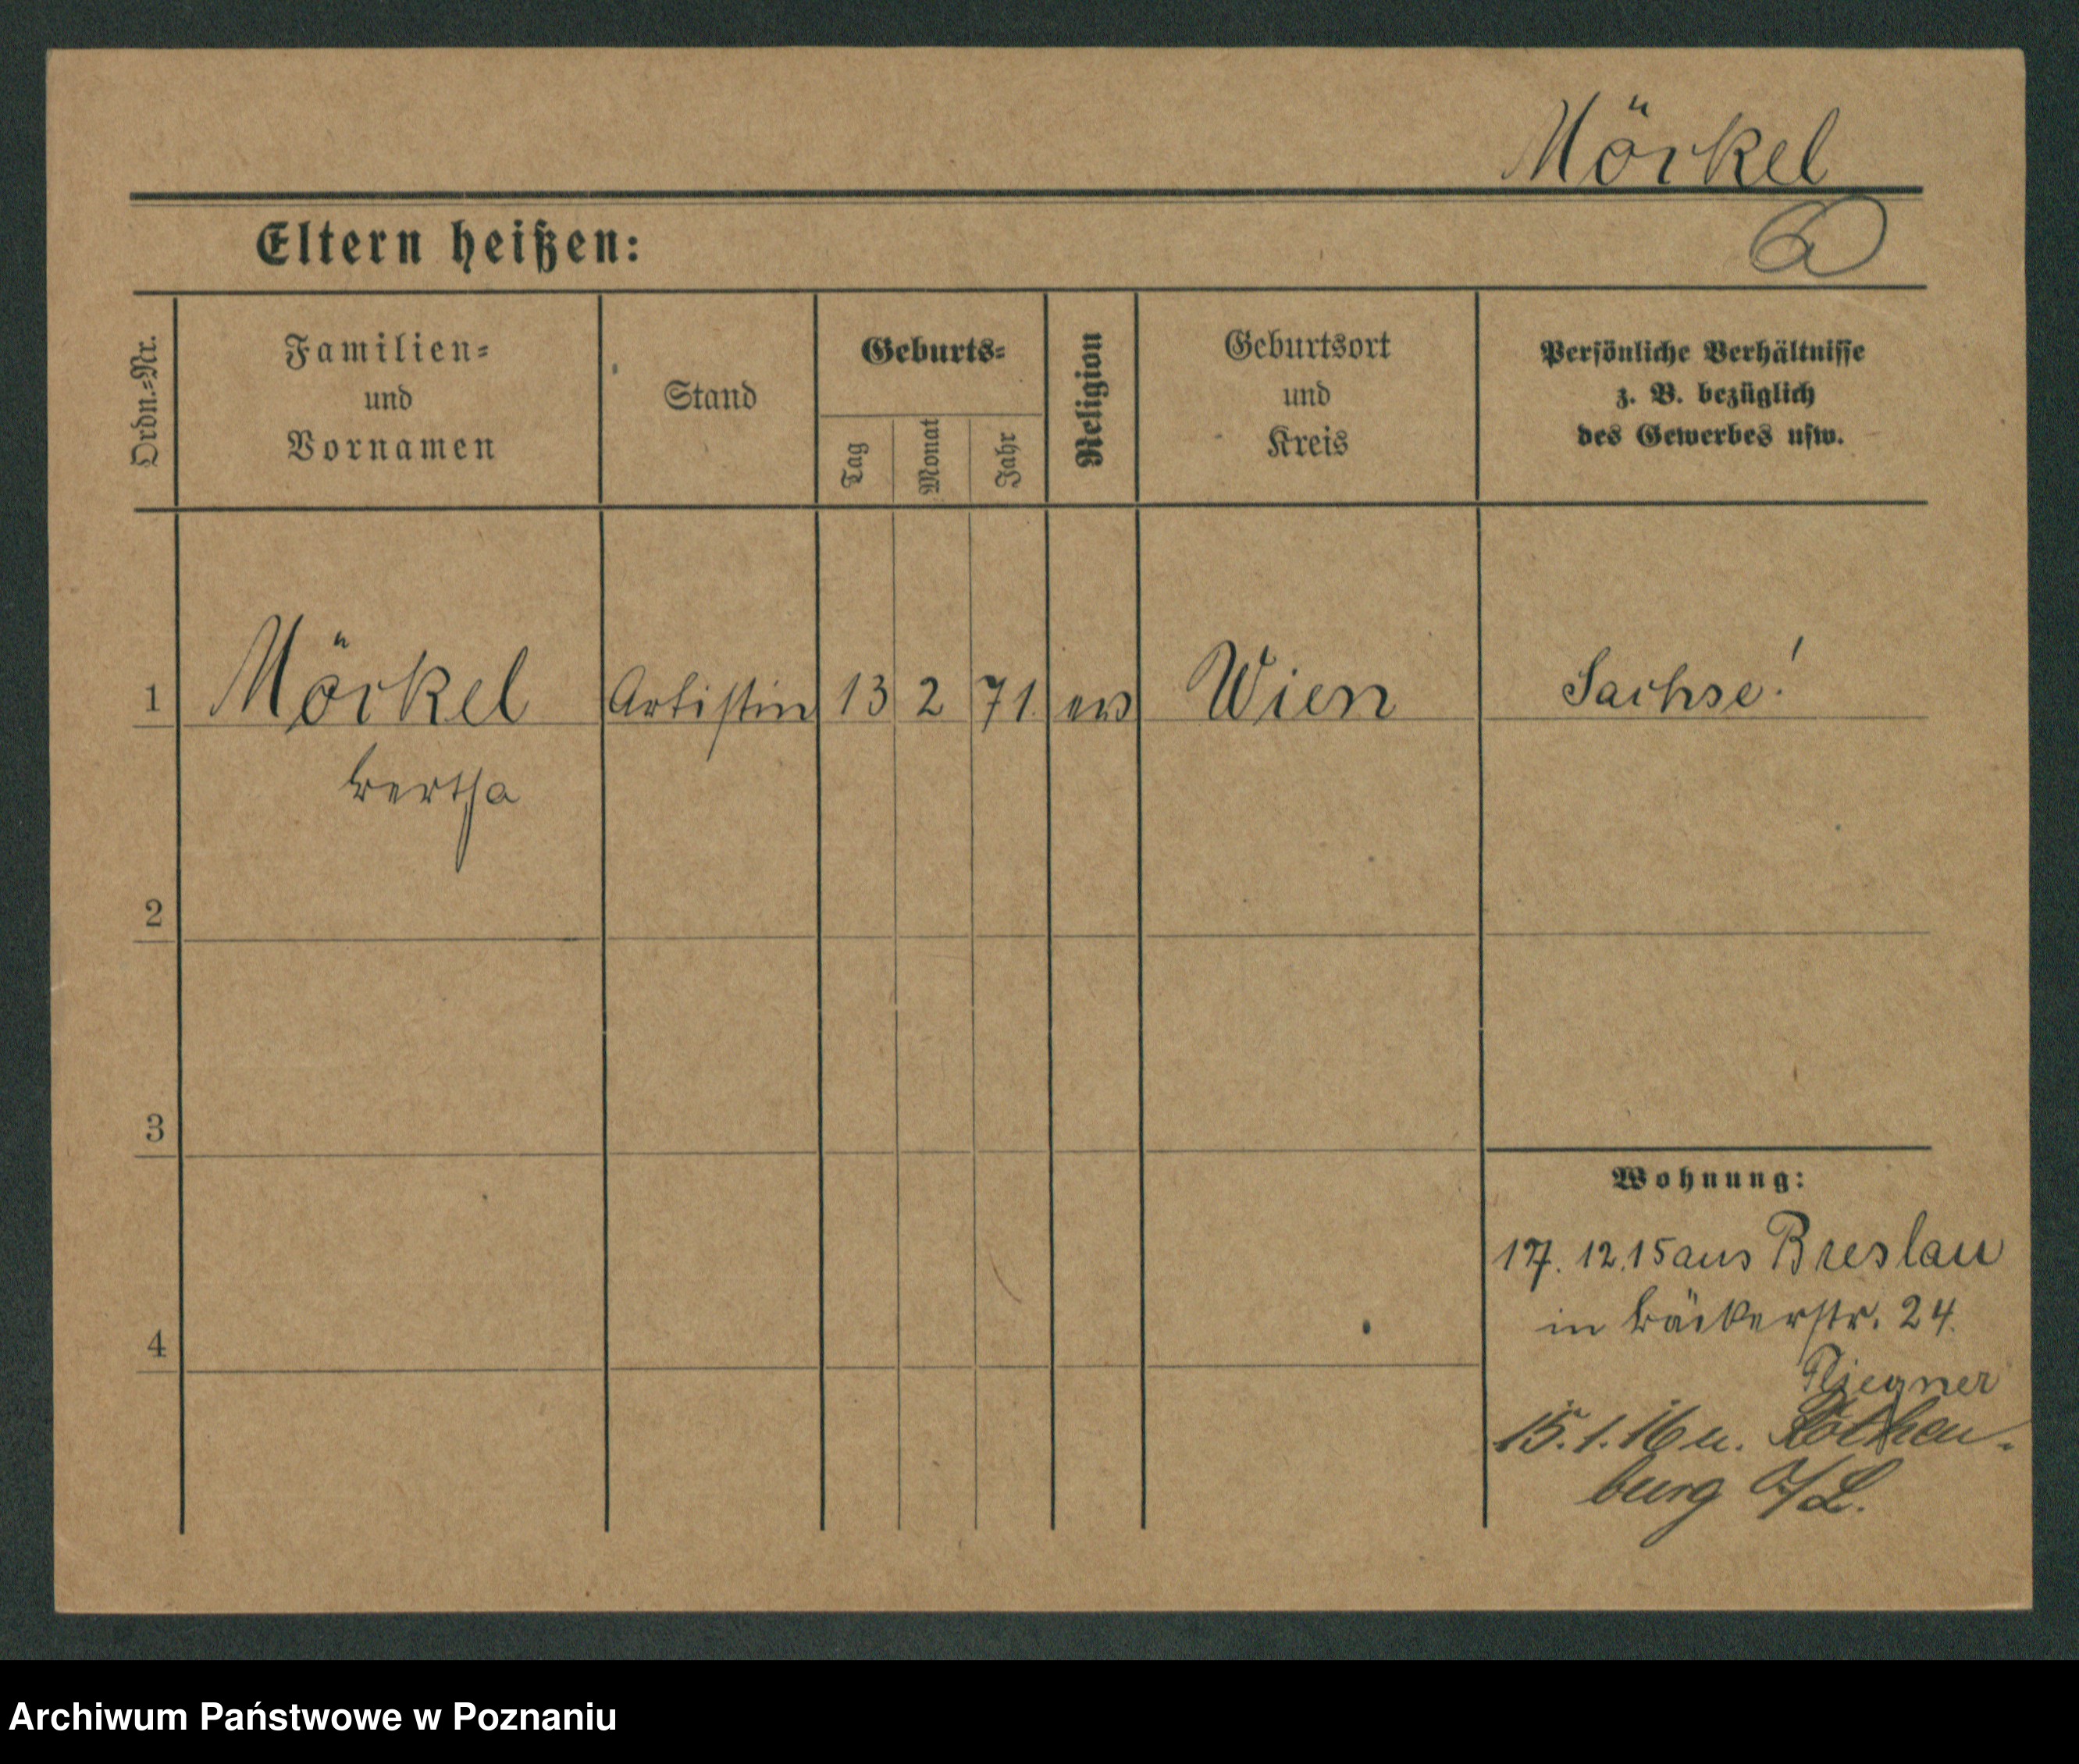 Mörkel
Eltern heißen:
Ordn.=Nr.
Familien=
und
Vornamen
Stand
Geburts=
Tag
Monat
Jahr
Religion
Geburtsort
und
Kreis
Persönliche Verhältnisse
z. B. bezüglich
des Gewerbes usw.
1 Mörkel Artistin 13 2 71 ev Wien Sachse!
Bertha
2
3
4
Wohnung:
17. 12. 15 aus Breslau
in Bäckerstr. 24.
15. 1. 16 n. Rothen-
burg O/L.
Archiwum Państwowe w Poznaniu